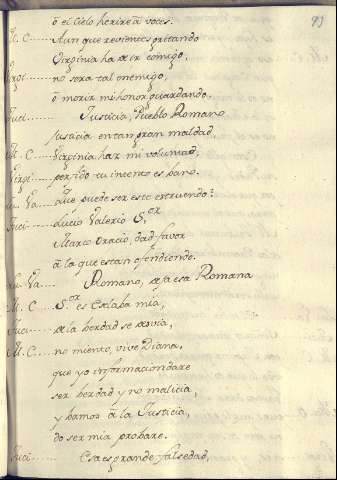 ô el cielo herire â voces.
M. C...... Aunque revientes gritando
Virginia ha de ir comigo.
Virgi...... no sera tal enemigo,
ô morir mi honor guardando.
Iuci...... Justicia, Pueblo Romano
justicia en tan gran maldad
M. C...... Virginia haz mi voluntad.
Virgi...... perfido tu intento es bano.
Lu. Va...... Que puede ser este estruendo?
Iuci...... Lucio Valerio S.or
Marco oracio, dad favor
â la que estan ofendiendo.
Lu. Va...... Romano, dexa esa Romana
M. C...... S.or es esclaba mia,
Iuci...... de la berdad se desvia,
M. C...... no miento, vive Diana,
que yo informacion dare
ser berdad y no malicia,
y bamos â la Justicia,
do ser mia probare.
Iuci...... Esa es grande falsedad,